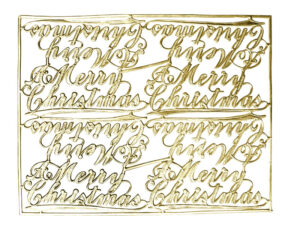 Christmas Christmas
A Merry A Merry
A Merry A Merry
Christmas Christmas
Christmas Christmas
A Merry A Merry
A Merry A Merry
Christmas Christmas